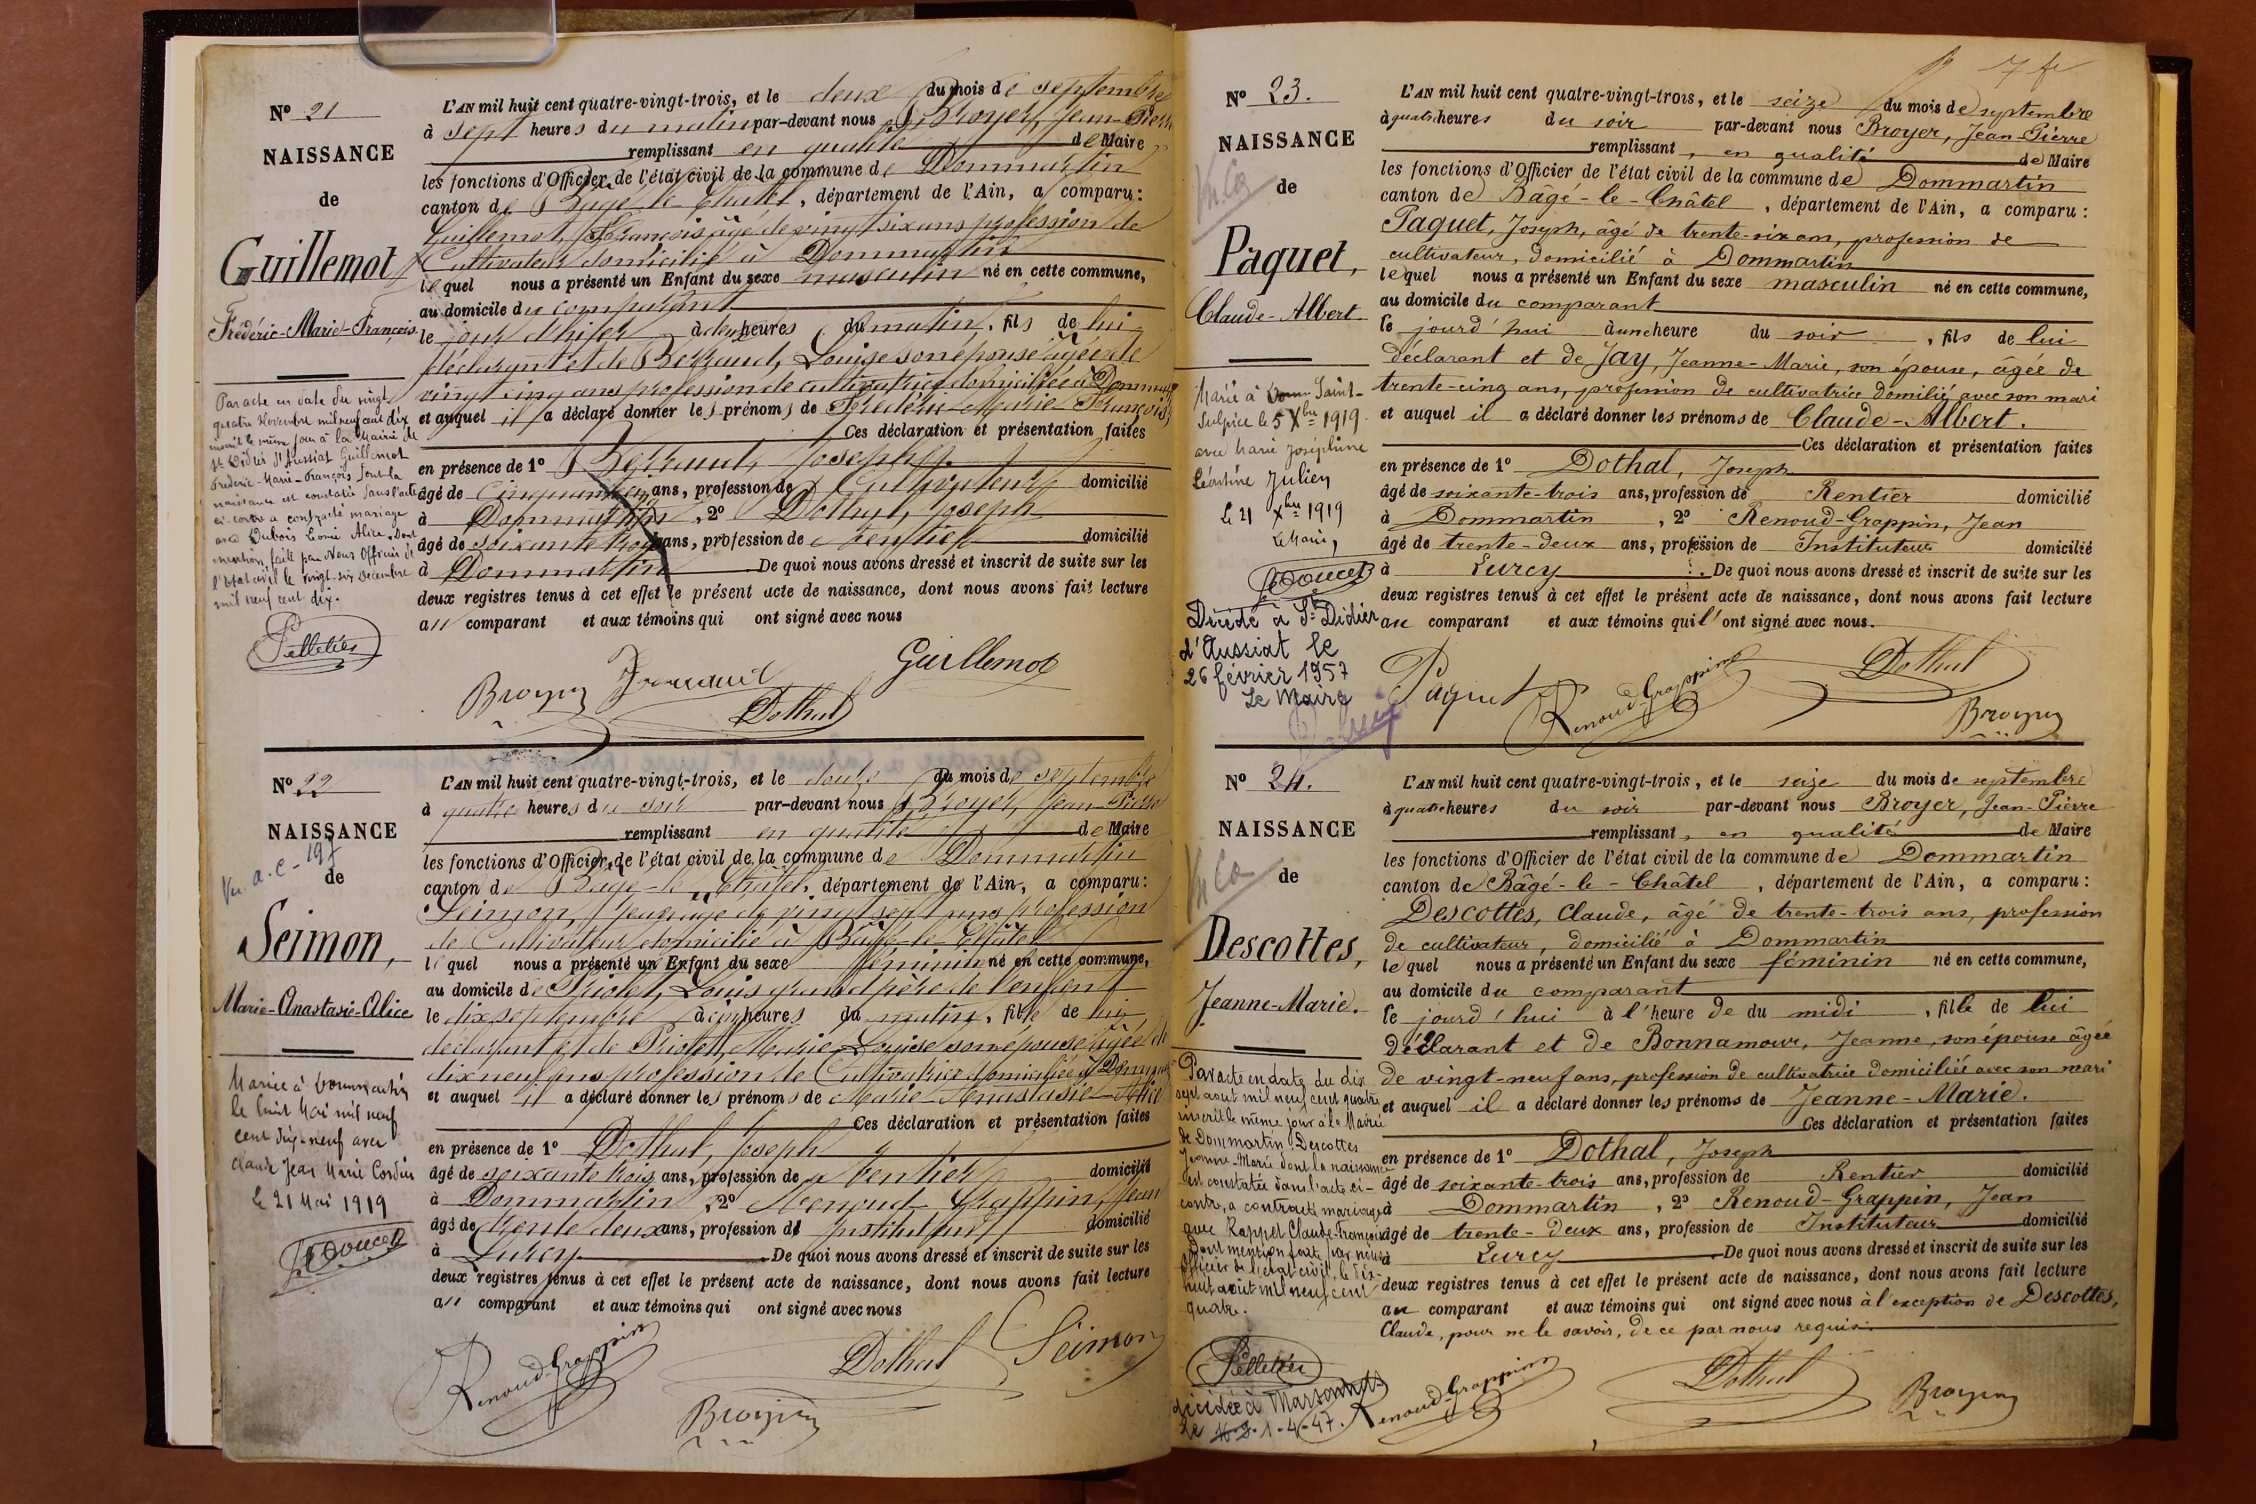 N° 21
NAISSANCE
de
Guillemot
Frédéric-Marie-François
Par acte en date du vingt
quatre Novembre mil neuf cent dix
inscrit le même jour à la Mairie de
St Didier d'Aussiat Guillemot
Frédéric-Marie-François dont la
naissance est constatée dans l'acte
ci-contre a contracté mariage
avec Dubois Alice. Dont
mention faite par Nous Officier de
l'Etat civil le vingt-six Décembre
mil neuf cent dix.
Pelletier
L'AN mil huit cent quatre-vingt-trois, et le deux du mois de septembre
à sept heures du matin par-devant nous Broyer, Jean-Pierre
remplissant en qualité de Maire
les fonctions d'Officier de l'état civil de la commune de Dommartin
canton de Bâgé-le-Châtel, département de l'Ain, a comparu:
Guillemot, François âgé de vingt six ans profession de
Cultivateur domicilié à Dommartin
lequel nous a présenté un Enfant du sexe masculin né en cette commune,
au domicile du comparant
le jour d'hier à deux heures du matin, fils de lui
déclarant et de Louise son épouse âgée de
vingt cinq ans profession de cultivatrice domiciliée à Dommartin
et auquel il a déclaré donner les prénoms de Frédéric-Marie-François
Ces déclaration et présentation faites
en présence de 1° Joseph
âgé de ans, profession de Cultivateur domicilié
à Dommartin, 2° Dothal, Joseph
âgé de soixante trois ans, profession de rentier domicilié
à Dommartin De quoi nous avons dressé et inscrit de suite sur les
deux registres tenus à cet effet le présent acte de naissance, dont nous avons fait lecture
au comparant et aux témoins qui ont signé avec nous
Guillemot
Broyer
Dothal
N° 22
NAISSANCE
de
Vu a.c- 197
Seimon,
Marie-Anastasie-Alice
Mariée à Dommartin
le huit Mai mil neuf
cent dix-neuf avec
Claude Jean Marie Cordier
Le 21 Mai 1919
Doucet
L'AN mil huit cent quatre-vingt-trois, et le douze du mois de septembre
à quatre heures du soir par-devant nous Broyer, Jean-Pierre
remplissant en qualité de Maire
les fonctions d'Officier de l'état civil de la commune de Dommartin
canton de Bâgé-le-Châtel, département de l'Ain, a comparu:
Seimon, âgé de vingt sept ans profession
de Cultivateur domicilié à Bâgé-le-Châtel
lequel nous a présenté un Enfant du sexe féminin né en cette commune,
au domicile de Priolet, Louis grand père de l'enfant
le dix septembre à cinq heures du matin, fille de lui
déclarant et de Priolet, Marie Louise son épouse âgée de
dix neuf ans profession de Cultivatrice domiciliée à Dommartin
et auquel il a déclaré donner les prénoms de Marie-Anastasie-Alice
Ces déclaration et présentation faites
en présence de 1° Dothal, Joseph
âgé de soixante trois ans, profession de rentier domicilié
à Dommartin, 2° Renoud-Grappin, Jean
âgé de trente deux ans, profession d' Instituteur domicilié
à Lurcy De quoi nous avons dressé et inscrit de suite sur les
deux registres tenus à cet effet le présent acte de naissance, dont nous avons fait lecture
au comparant et aux témoins qui ont signé avec nous
Renoud-Grappin
Dothal
Seimon
Broyer
N° 23.
NAISSANCE
de
Paquet,
Claude-Albert
Marié à Saint-
Sulpice le 5 Xbre 1919
avec Marie Joséphine
Léontine Julien
Le 21 Xbre 1919
Le Maire,
Doucet
Décédé à St Didier
d'Aussiat le
26 février 1957
Le Maire
L'AN mil huit cent quatre-vingt-trois, et le seize du mois de septembre
à quatre heures du soir par-devant nous Broyer, Jean-Pierre
remplissant, en qualité de Maire
les fonctions d'Officier de l'état civil de la commune de Dommartin
canton de Bâgé-le-Châtel, département de l'Ain, a comparu:
Paquet, Joseph, âgé de trente-six ans, profession de
cultivateur, domicilié à Dommartin
lequel nous a présenté un Enfant du sexe masculin né en cette commune,
au domicile du comparant
le jourd'hui à une heure du soir, fils de lui
déclarant et de Jay, Jeanne-Marie, son épouse, âgée de
trente-cinq ans, profession de cultivatrice domilié avec son mari
et auquel il a déclaré donner les prénoms de Claude-Albert.
Ces déclaration et présentation faites
en présence de 1° Dothal, Joseph
âgé de soixante-trois ans, profession de Rentier domicilié
à Dommartin, 2° Renoud-Grappin, Jean
âgé de trente-deux ans, profession de Instituteur domicilié
à Lurcy. De quoi nous avons dressé et inscrit de suite sur les
deux registres tenus à cet effet le présent acte de naissance, dont nous avons fait lecture
au comparant et aux témoins qui l'ont signé avec nous.
Paquet
Renoud-Grappin
Dothal
Broyer
N° 24.
NAISSANCE
de
Descottes,
Jeanne-Marie.
Par acte en date du dix
sept août mil neuf cent quatre
inscrit le même jour à la Mairie
de Dommartin Descottes
Jeanne-Marie dont la naissance
est constatée dans l'acte ci-
contre, a contracté mariage
avec Rappet Claude-François
Dont mention faite par nous
Officier de l'état civil, le dix-
huit août mil neuf cent
quatre.
Pelletier
décédée à Marsonnas
le 1-4-47.
L'AN mil huit cent quatre-vingt-trois, et le seize du mois de septembre
à quatre heures du soir par-devant nous Broyer, Jean-Pierre
remplissant, en qualité de Maire
les fonctions d'Officier de l'état civil de la commune de Dommartin
canton de Bâgé-le-Châtel, département de l'Ain, a comparu:
Descottes, Claude, âgé de trente-trois ans, profession
de cultivateur, domicilié à Dommartin
lequel nous a présenté un Enfant du sexe féminin né en cette commune,
au domicile du comparant
le jourd'hui à l'heure de du midi, fille de lui
déclarant et de Bonnamour, Jeanne, son épouse âgée
de vingt-neuf ans, profession de cultivatrice domiciliée avec son mari
et auquel il a déclaré donner les prénoms de Jeanne-Marie.
Ces déclaration et présentation faites
en présence de 1° Dothal, Joseph
âgé de soixante-trois ans, profession de Rentier domicilié
à Dommartin, 2° Renoud-Grappin, Jean
âgé de trente-deux ans, profession de Instituteur domicilié
à Lurcy De quoi nous avons dressé et inscrit de suite sur les
deux registres tenus à cet effet le présent acte de naissance, dont nous avons fait lecture
au comparant et aux témoins qui ont signé avec nous à l'exception de Descottes,
Claude, pour ne le savoir, de ce par nous requis.
Renoud-Grappin
Dothal
Broyer